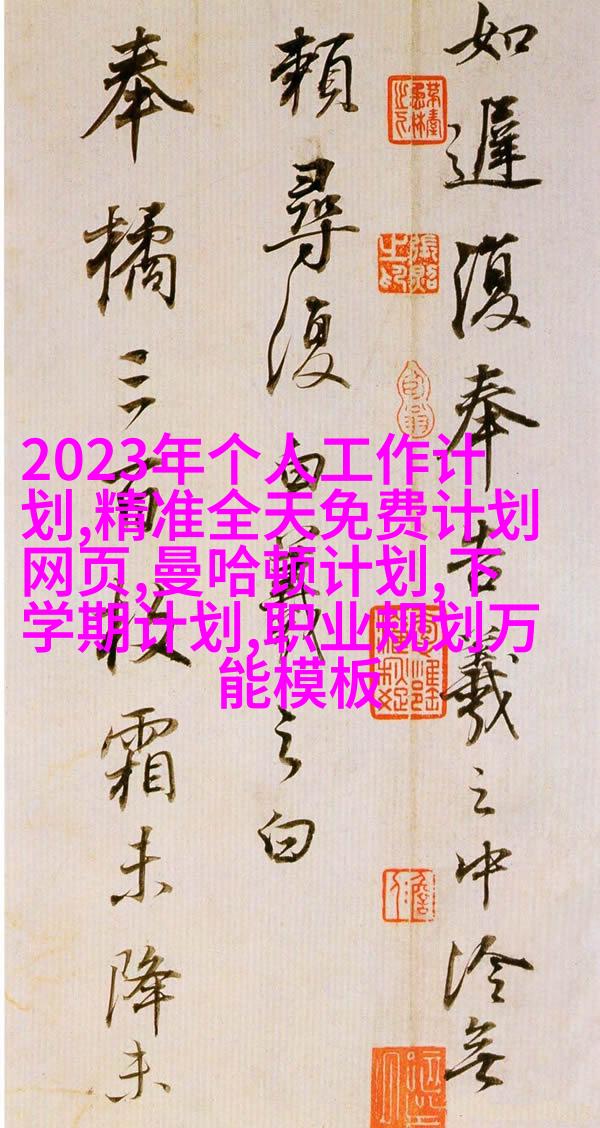 如遲復奉告羲之中冷無
賴尋復白羲之白
奉橘三百枚霜未降未
2023年个人工作计
划,精准全天免费计划
网页,曼哈顿计划,下
学期计划,职业规划万
能模板